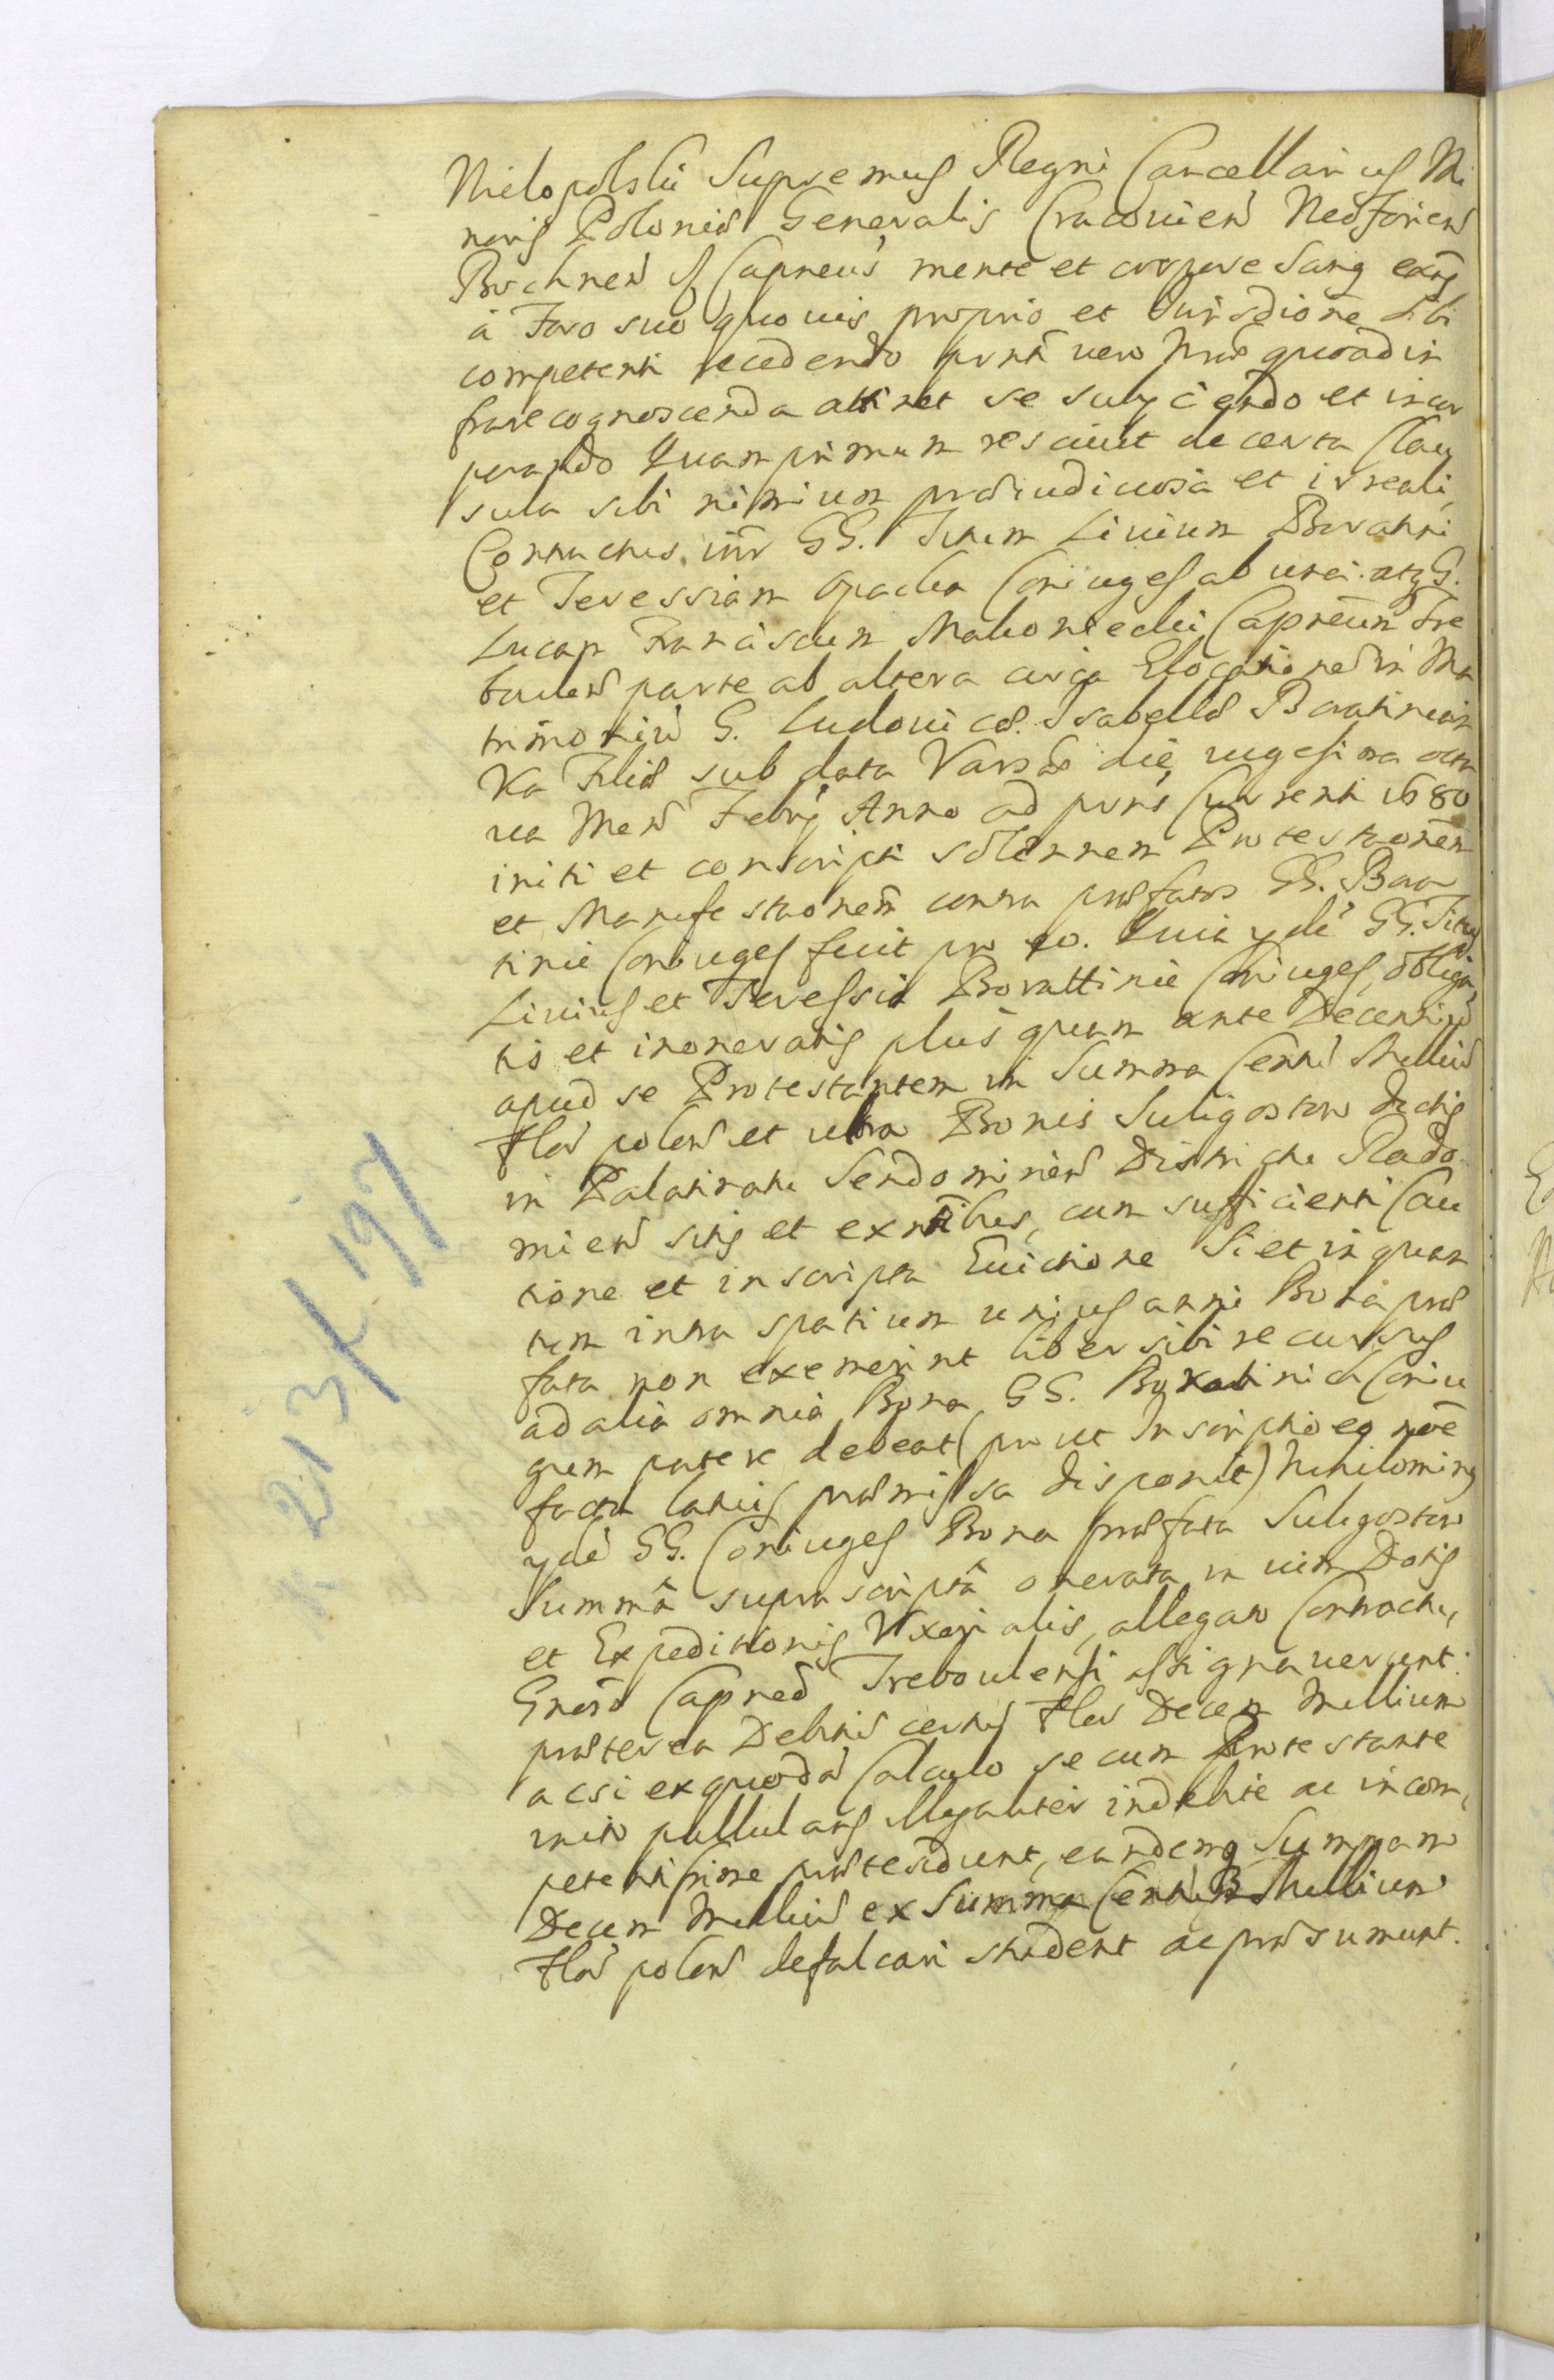 Wielopolski Supremus Regni Cancellarius Mi
noris Poloniæ Generalis Cracovien Neoforien
Bochnen & Capneus mente et corpore Sanq exns
à Foro suo quovis proprio et Jurisdione sibi
competenti recedendo pnti vero Præ quoad in
fra recognoscenda attinet se subyciendo et incor
porando Quamprimum resciuit de certa Clau
sula sibi nimium præiudiciosa et in reali
Contractus intr GG. Titum Liuium Boratini
et Teressiam Opacka Coniuges ab una. atq G.
Lucam Franciscum Malioneecki Capneum Tre
boulen parte ab altera circa Elocationem in Ma
trimoniũ G. Ludouicæ Isabellæ Boratinian
ka Filiæ sub data Varsæ die vigesima octa
ua Men Febrỹ Anno ad pnrs Currenti 1680
initi et conscripti solennem Protestaonem
et Manifestaonem contra præfatos GG. Bora
tinie Coniuges fecit pro eo. Quia ydẽ GG. Titus
Liuius et Teressia Borattinie Coniuges, obliga
tis et inoneratis plus quam ante Decenniũ
apud se Protestantem in Summa Centũ Milliũ
Flor polon et ultra Bonis Suligostow dictis
in Palatinatu Sendomirien Districtu Rado
mien sitis et exntibus, cum sufficienti Cau
tione et inscripta Euictione Si et in quan
tum intra spatium unius anni Bona præ
fata non exemerint liber sibi recursus
ad alia omnia Bona GG. Boratinich Coniu
gum patere debeat (prout Inscriptio eo noẽ
facta latius præmissa disponit) nihilominus
ydẽ GG. Coniuges Bona præfata Suligostow
Summâ suprascriptâ onerata in vim Dotis
et Expeditionis Vxorialis, allegato Contractu,
Gnoso Capneo Treboulensi assignauerunt:
præterea Debitũ certũ Flor Decem Millium
acsi ex quodã Calculo secum Protestante
inito pullulans illegaliter indebite ac incom
petentissime prætendunt, eandemq Summam
Decem Milliũ ex Summa Centum Millium
Flor polon defalcari student ac præsumunt.
K 213 f 197